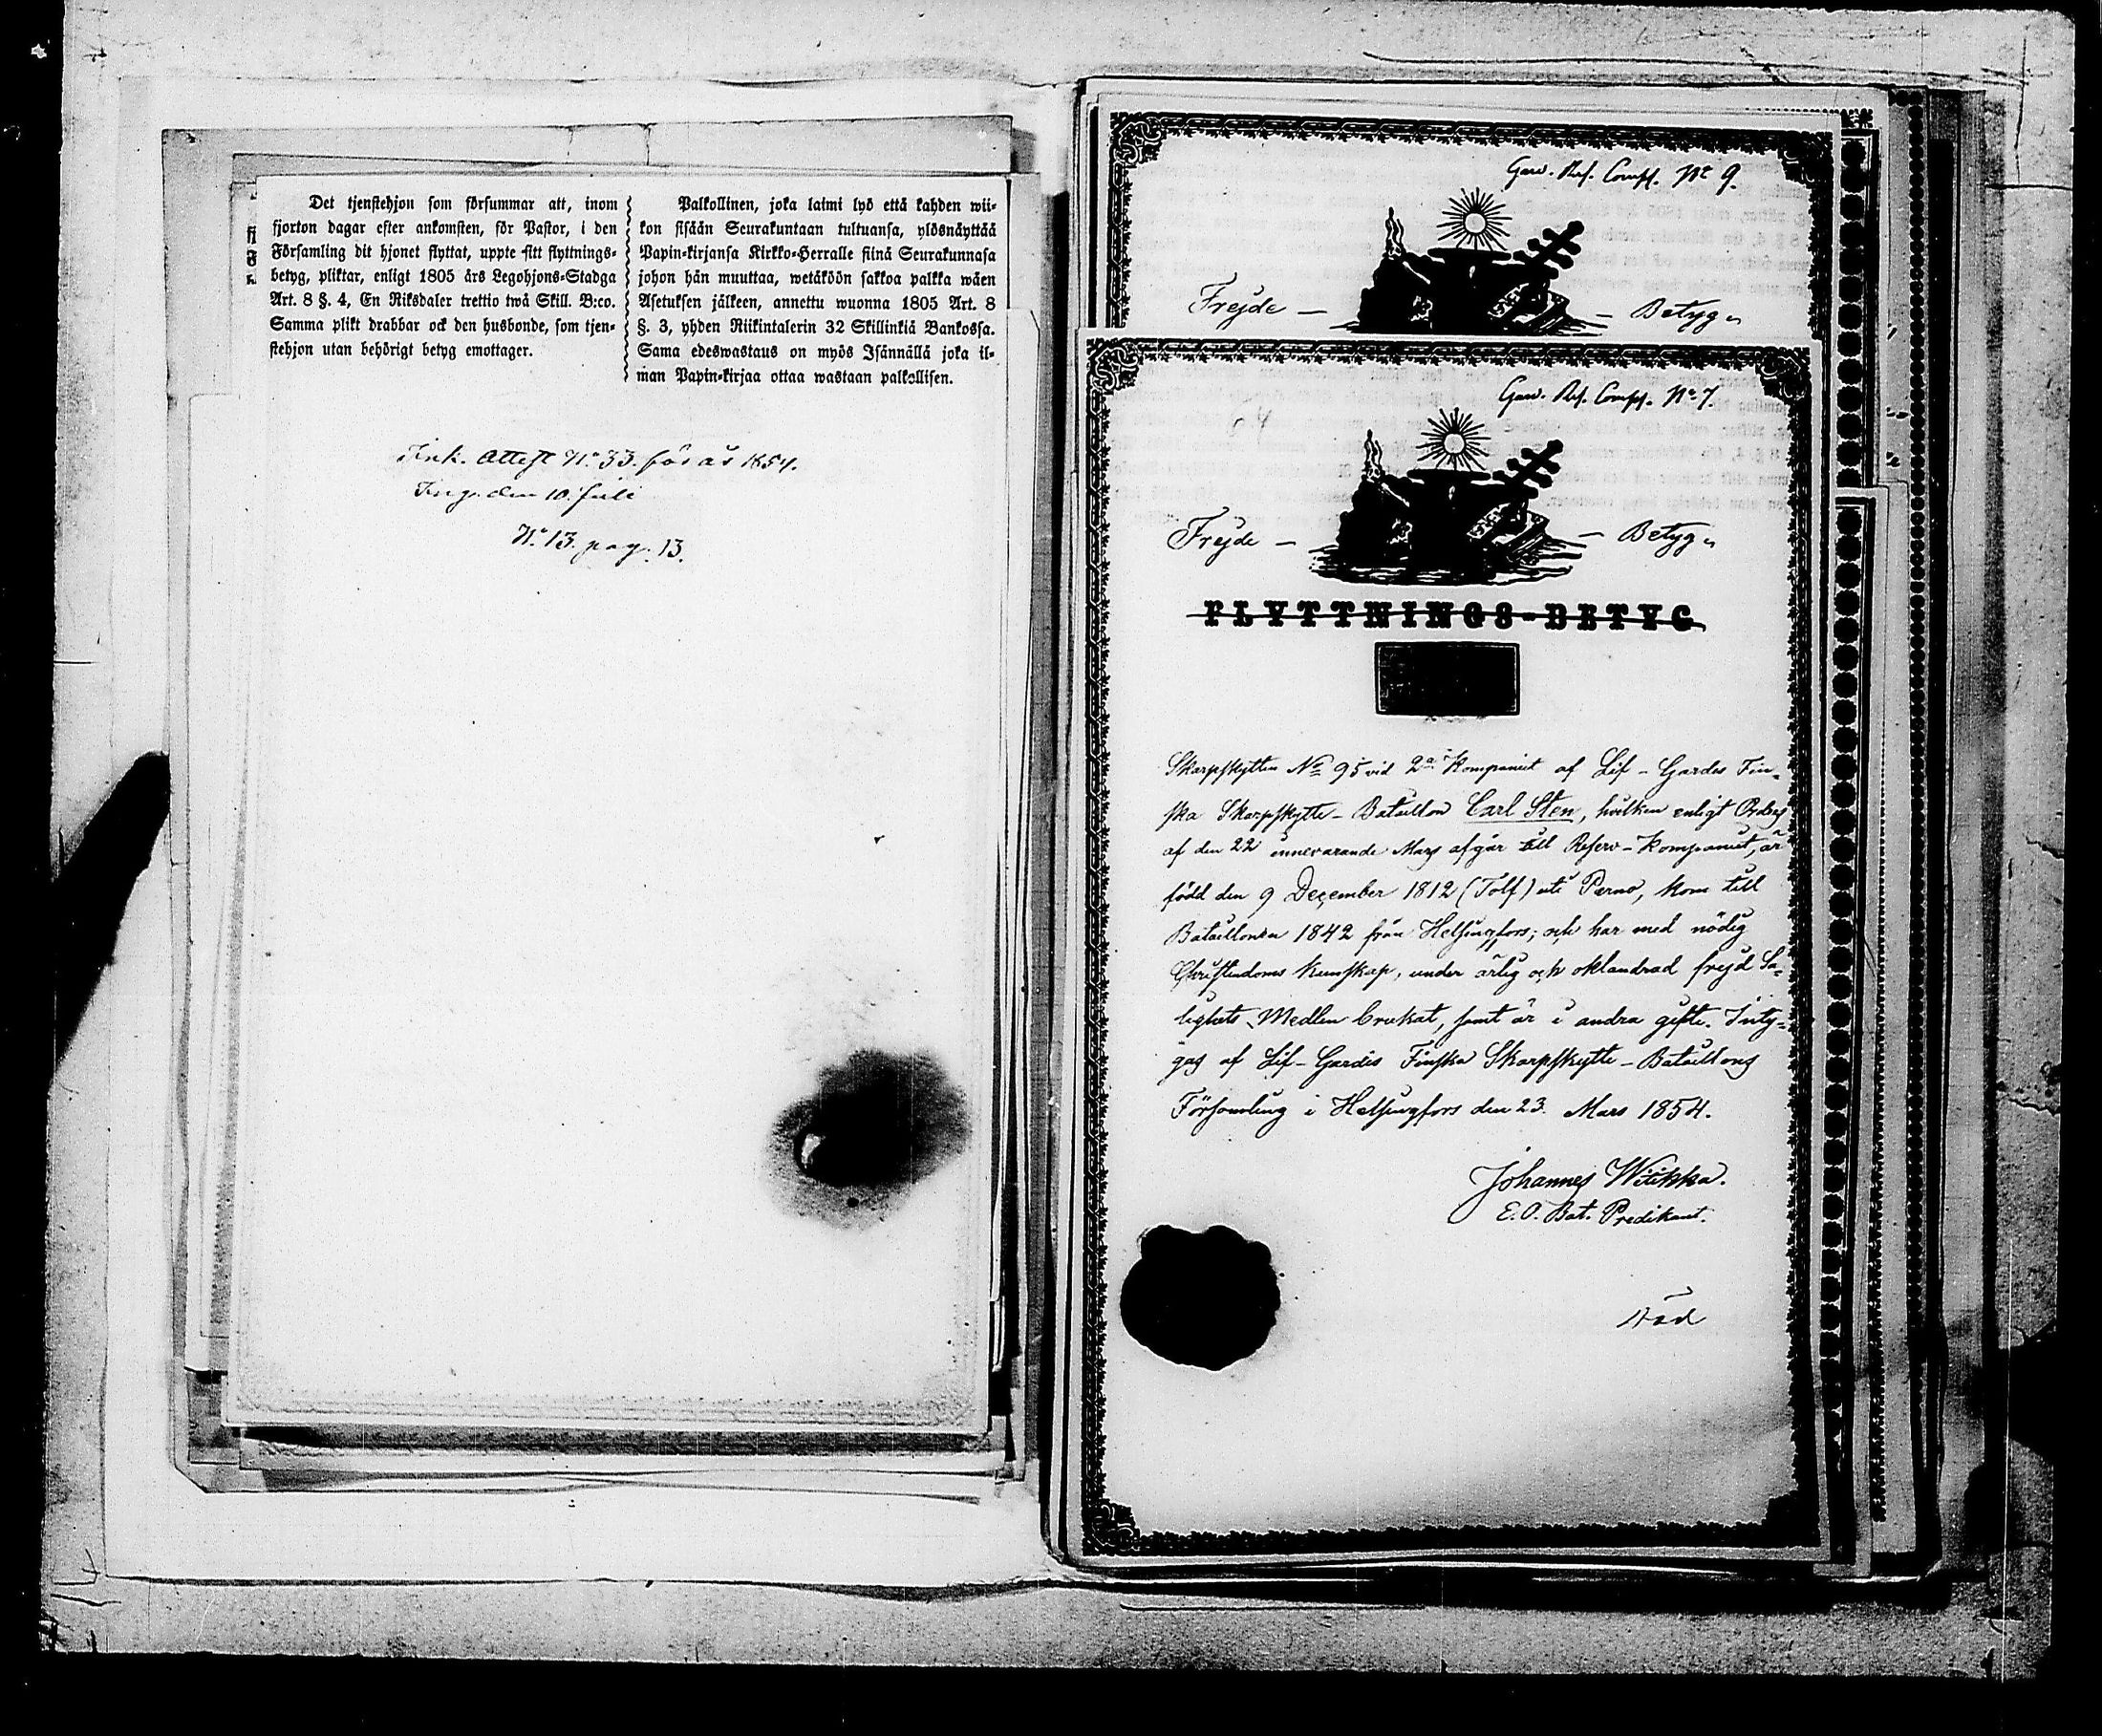 Det tjenstehjon som försummar att, inom
fjorton dagar efter ankomsten, för Pastor, i den
Församling dit hjonet flyttat, uppte sitt flyttnings-
betyg, pliktar, enligt 1805 års Legohjons-Stadga
Art. 8 §. 4, En Riksdaler trettio twå Skill. B:co.
Samma plikt drabbar ock den husbonde, som tjen-
stehjon utan behörigt betyg emottager.
Palkollinen, joka laimi lyö että kahden wii-
kon sisään Seurakuntaan tultuansa, ylösnäyttää
Papin-kirjansa Kirkko-Herralle siinä Seurakunnasa
johon hän muuttaa, wetäköön sakkoa palkka wäen
Asetuksen jälkeen, annettu wuonna 1805 Art. 8
§. 3, yhden Riikintalerin 32 Skillinkiä Bankossa.
Sama edeswastaus on myös Isännällä joka il-
man Papin-kirjaa ottaa wastaan palkollisen.
Attest No 33. för år 1854.
den 10. Juli
No 13. pag. 13.
Gard. Res. Comp. No 9.
Frejde — Betyg
Gard. Res. Comp. No 7.
Frejde — Betyg
FLYTTNINGS-BETYG
Skarpskytten No 95 vid 2a Kompaniet af Lif-Gardes Fin-
ska Skarpskytte-Bataillon Carl Sten, hvilken enligt Orders
af den 22 innevarande Mars afgår till Reserv-Kompaniet, är
född den 9 December 1812 (Tolf) uti Perno, kom till
Bataillonen 1842 från Helsingfors; och har med nödig
Christendoms kunskap, under ärlig och oklandrad frejd Sa-
lighets Medlen brukat, samt är i andra gifte. Inty-
gas af Lif-Gardes Finska Skarpskytte-Bataillons
Församling i Helsingfors den 23. Mars 1854.
Johannes Wiikka.
E. O. Bat. Predikant.